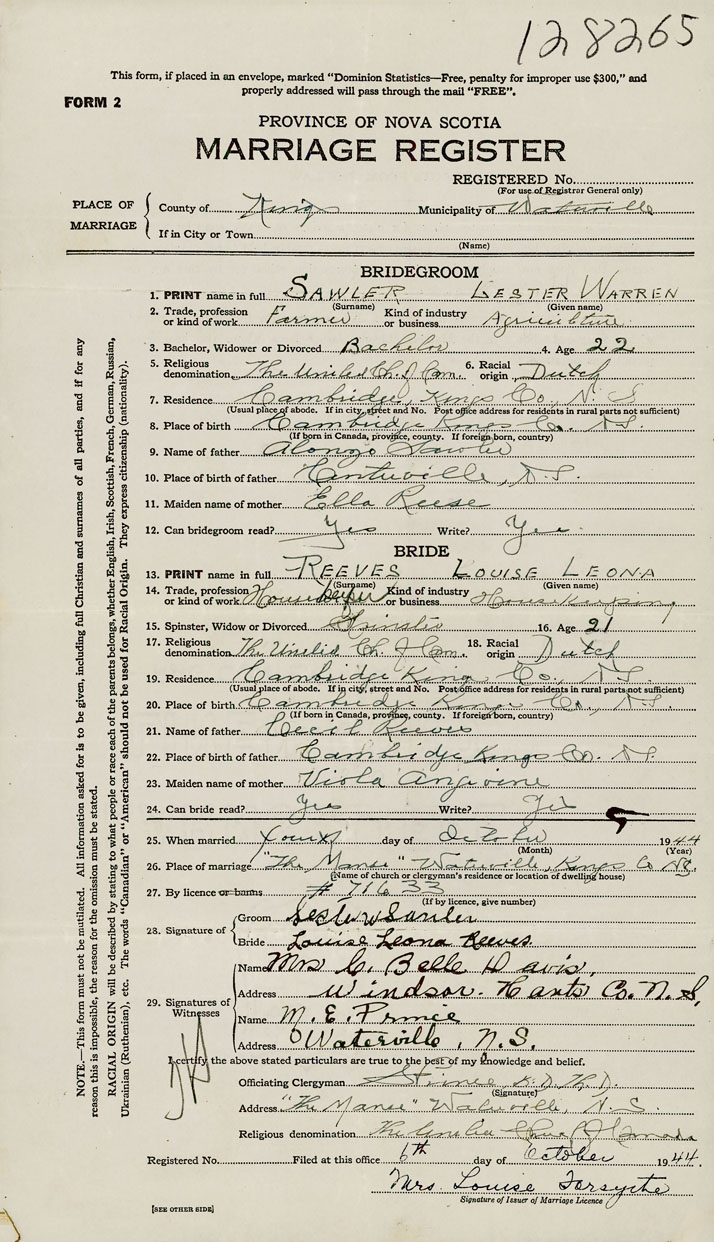 128265
This form, if placed in an envelope, marked "Dominion Statistics—Free, penalty for improper use $300," and
properly addressed will pass through the mail "FREE".
FORM 2
PROVINCE OF NOVA SCOTIA
MARRIAGE REGISTER
REGISTERED No.
(For use of Registrar General only)
PLACE OF MARRIAGE
County of Kings Municipality of Waterville
If in City or Town
(Name)
BRIDEGROOM
1. PRINT name in full SAWLER LESTER WARREN
(Surname) (Given name)
2. Trade, profession or kind of work Farmer Kind of industry or business Agriculture
3. Bachelor, Widower or Divorced Bachelor 4. Age 22
5. Religious denomination The United Ch. of Can. 6. Racial origin Dutch
7. Residence Cambridge, Kings Co., N.S.
(Usual place of abode. If in city, street and No. Post office address for residents in rural parts not sufficient)
8. Place of birth Cambridge Kings Co. N.S.
(If born in Canada, province, county. If foreign born, country)
9. Name of father Alonzo Sawler
10. Place of birth of father Centreville, N.S.
11. Maiden name of mother Ella Reese
12. Can bridegroom read? Yes Write? Yes
BRIDE
13. PRINT name in full REEVES LOUISE LEONA
(Surname) (Given name)
14. Trade, profession or kind of work Housekeeper Kind of industry or business Housekeeping
15. Spinster, Widow or Divorced Spinster 16. Age 21
17. Religious denomination The United Ch. of Can. 18. Racial origin Dutch
19. Residence Cambridge Kings Co., N.S.
(Usual place of abode. If in city, street and No. Post office address for residents in rural parts not sufficient)
20. Place of birth Cambridge Kings Co., N.S.
(If born in Canada, province, county. If foreign born, country)
21. Name of father Cecil Reeves
22. Place of birth of father Cambridge Kings Co. N.S.
23. Maiden name of mother Viola
24. Can bride read? Yes Write? Yes
25. When married day of October 1944
(Month) (Year)
26. Place of marriage "The Manse" Waterville, Kings Co N.S.
(Name of church or clergyman's residence or location of dwelling house)
27. By licence or banns # 71633
(If by licence, give number)
28. Signature of
Groom Lester W Sawler
Bride Louise Leona Reeves
29. Signatures of Witnesses
Name Mrs C. Belle Davis,
Address Windsor. Hants Co. N.S,
Name M. E. Prince
Address Waterville, N.S.
I certify the above stated particulars are true to the best of my knowledge and belief.
Officiating Clergyman
(Signature)
Address "The Manse" Waterville, N.S.
Religious denomination The United Church of Canada
Registered No. Filed at this office 6th day of October 1944.
Mrs. Louise Forsythe
Signature of Issuer of Marriage Licence
[SEE OTHER SIDE]
NOTE.—This form must not be mutilated. All information asked for is to be given, including full Christian and surnames of all parties, and if for any
reason this is impossible, the reason for the omission must be stated.
RACIAL ORIGIN will be described by stating to what people or race each of the parents belongs, whether English, Irish, Scottish, French, German, Russian,
Ukrainian (Ruthenian), etc. The words "Canadian" or "American" should not be used for Racial Origin. They express citizenship (nationality).